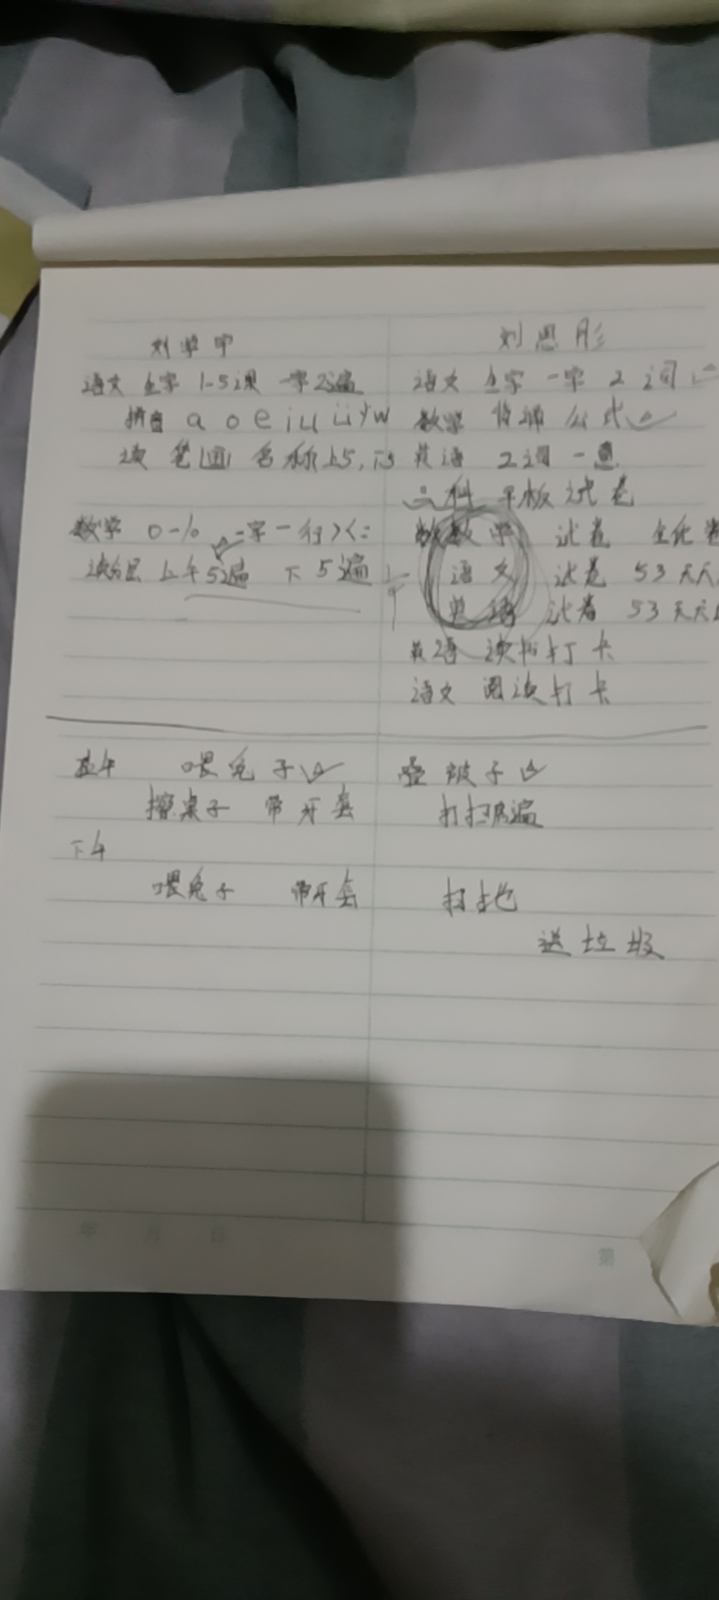 刘学
语文 生字 1-5课 一字2遍
拼音 a o e i u ü y w
读 笔画 名称 上5,下5
数学 0-10 一字一行 > < =
读 上午5遍 下5遍
刘思彤
语文 生字 一字 2词
数学 背诵 公式
英语 2词一
三科 平板试卷
数学 试卷
语文 试卷 53天天
英语 试卷 53天天
英语 读书打卡
语文 阅读打卡
上午 喂兔子
擦桌子 带牙套
下午
喂兔子 带牙套
叠被子
打扫
扫地
送垃圾
年 月 日
第